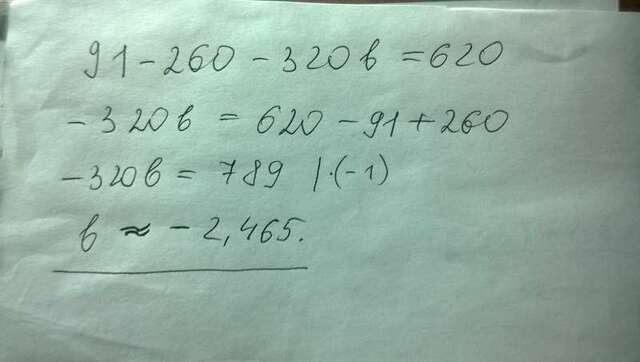 91-260-320в=620
-320в=620-91+260
-320в=789 |·(-1)
в≈-2,465.